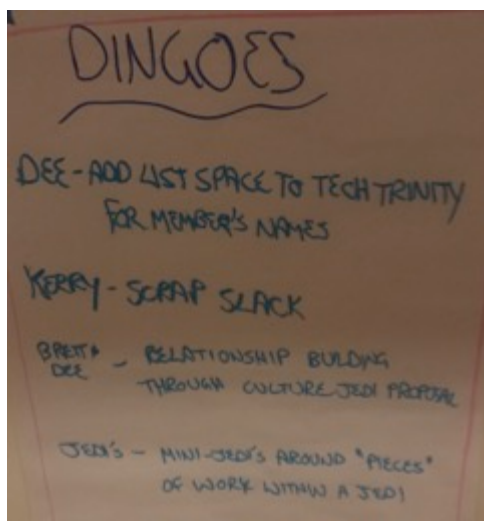 DINGOES
DEE - ADD LIST SPACE TO TECH TRINITY
FOR MEMBER'S NAMES
KERRY - SCRAP SLACK
BRETT +
DEE - RELATIONSHIP BUILDING
THROUGH CULTURE JEDI PROPOSAL
JEDI'S - MINI-JEDI'S AROUND "PIECES"
OF WORK WITHIN A JEDI